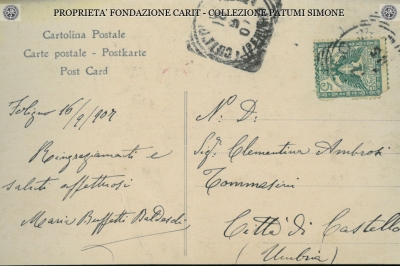 PROPRIETA' FONDAZIONE CARIT - COLLEZIONE PATUMI SIMONE
Cartolina Postale
Carte postale - Postkarte
Post Card
Foligno 16/9/907
Ringraziamenti e
saluti affettuosi
Maria Buffetti Baldeschi
N. D.
Sigª Clementina Ambrosi
Tommasini
Città di Castello
(Umbria)